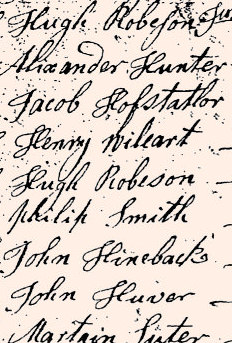 Hugh Robeson Jur
Alixander Hunter
Jacob Hofstatlor
Henry Wileart
Hugh Robeson
Philip Smith
John Hineback
John Huver
Martain Suter